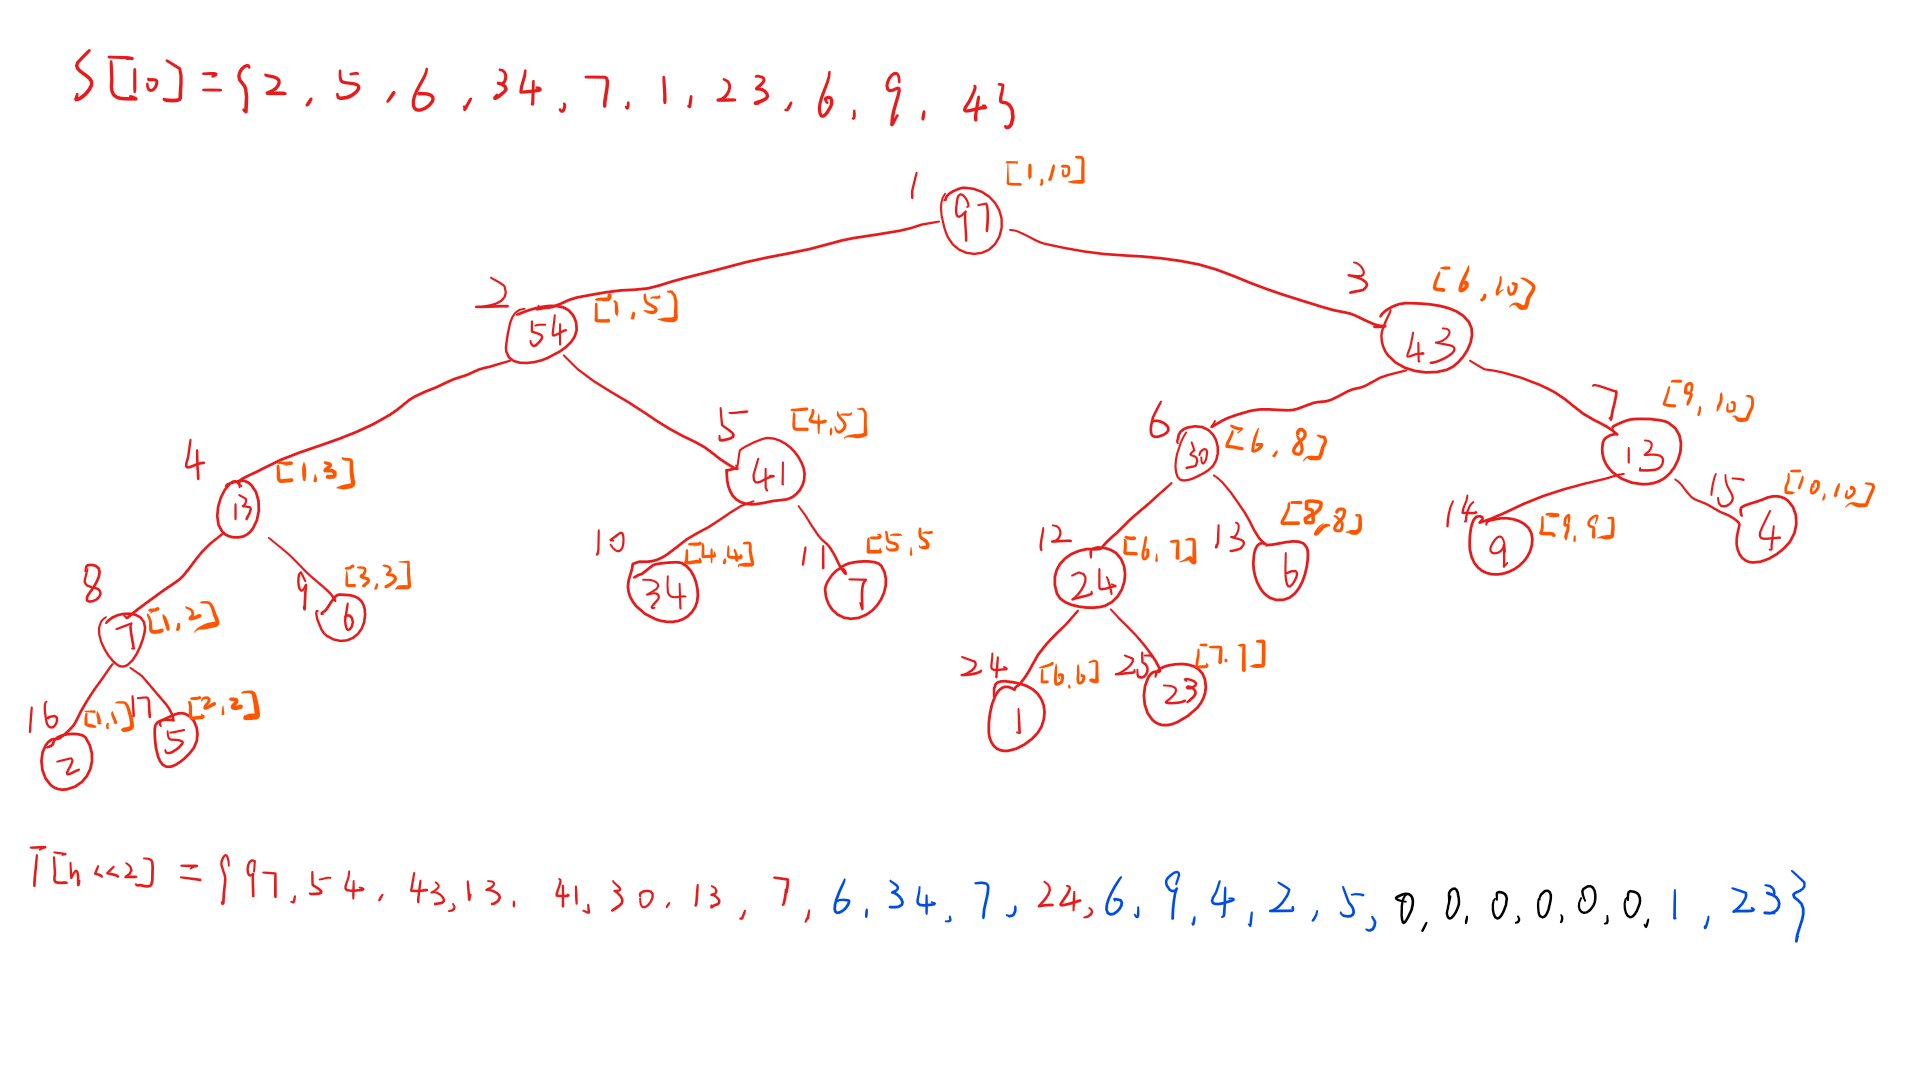 S[10]={2,5,6,34,7,1,23,6,9,4}
1 97 [1,10]
2 54 [1,5]
3 43 [6,10]
4 13 [1,3]
5 41 [4,5]
6 30 [6,8]
7 13 [9,10]
8 7 [1,2]
9 6 [3,3]
10 34 [4,4]
11 7 [5,5
12 24 [6,7]
13 6 [8,8]
14 9 [9,9]
15 4 [10,10]
16 2 [1,1]
17 5 [2,2]
24 1 [6,6]
25 23 [7.7]
T[n<<2]={97,54,43,13.41,30.13,7,6,34,7,24,6,9,4,2,5,0,0,0,0,0,0,1,23}